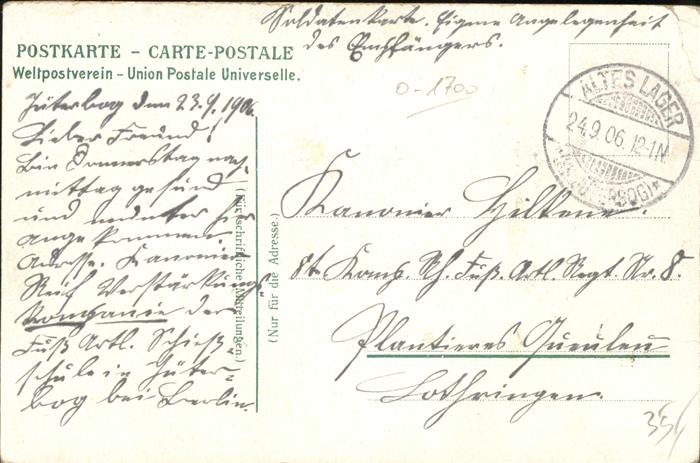 Soldatenkarte. Eigene Angelegenheit
des Empfängers.
POSTKARTE – CARTE-POSTALE
Weltpostverein – Union Postale Universelle.
0-1700
ALTES LAGER
24.9.06. 12-1N
Jüterbog den 23.9.1906.
Lieber Freund!
Bin Donnerstag nach-
mittag gesund
und munter hier
angekommen
Adresse. Kanonier
Reich Verstärkungs-
Kompanie der
Fuß Artl. Schieß-
schule in Jüter-
bog bei Berlin.
(Für schriftliche Mitteilungen.)
(Nur für die Adresse.)
Kanonier
8te Komp. Rh. Fuß. Artl. Regt. Nr. 8.
Plantieres Queuleu
Lothringen.